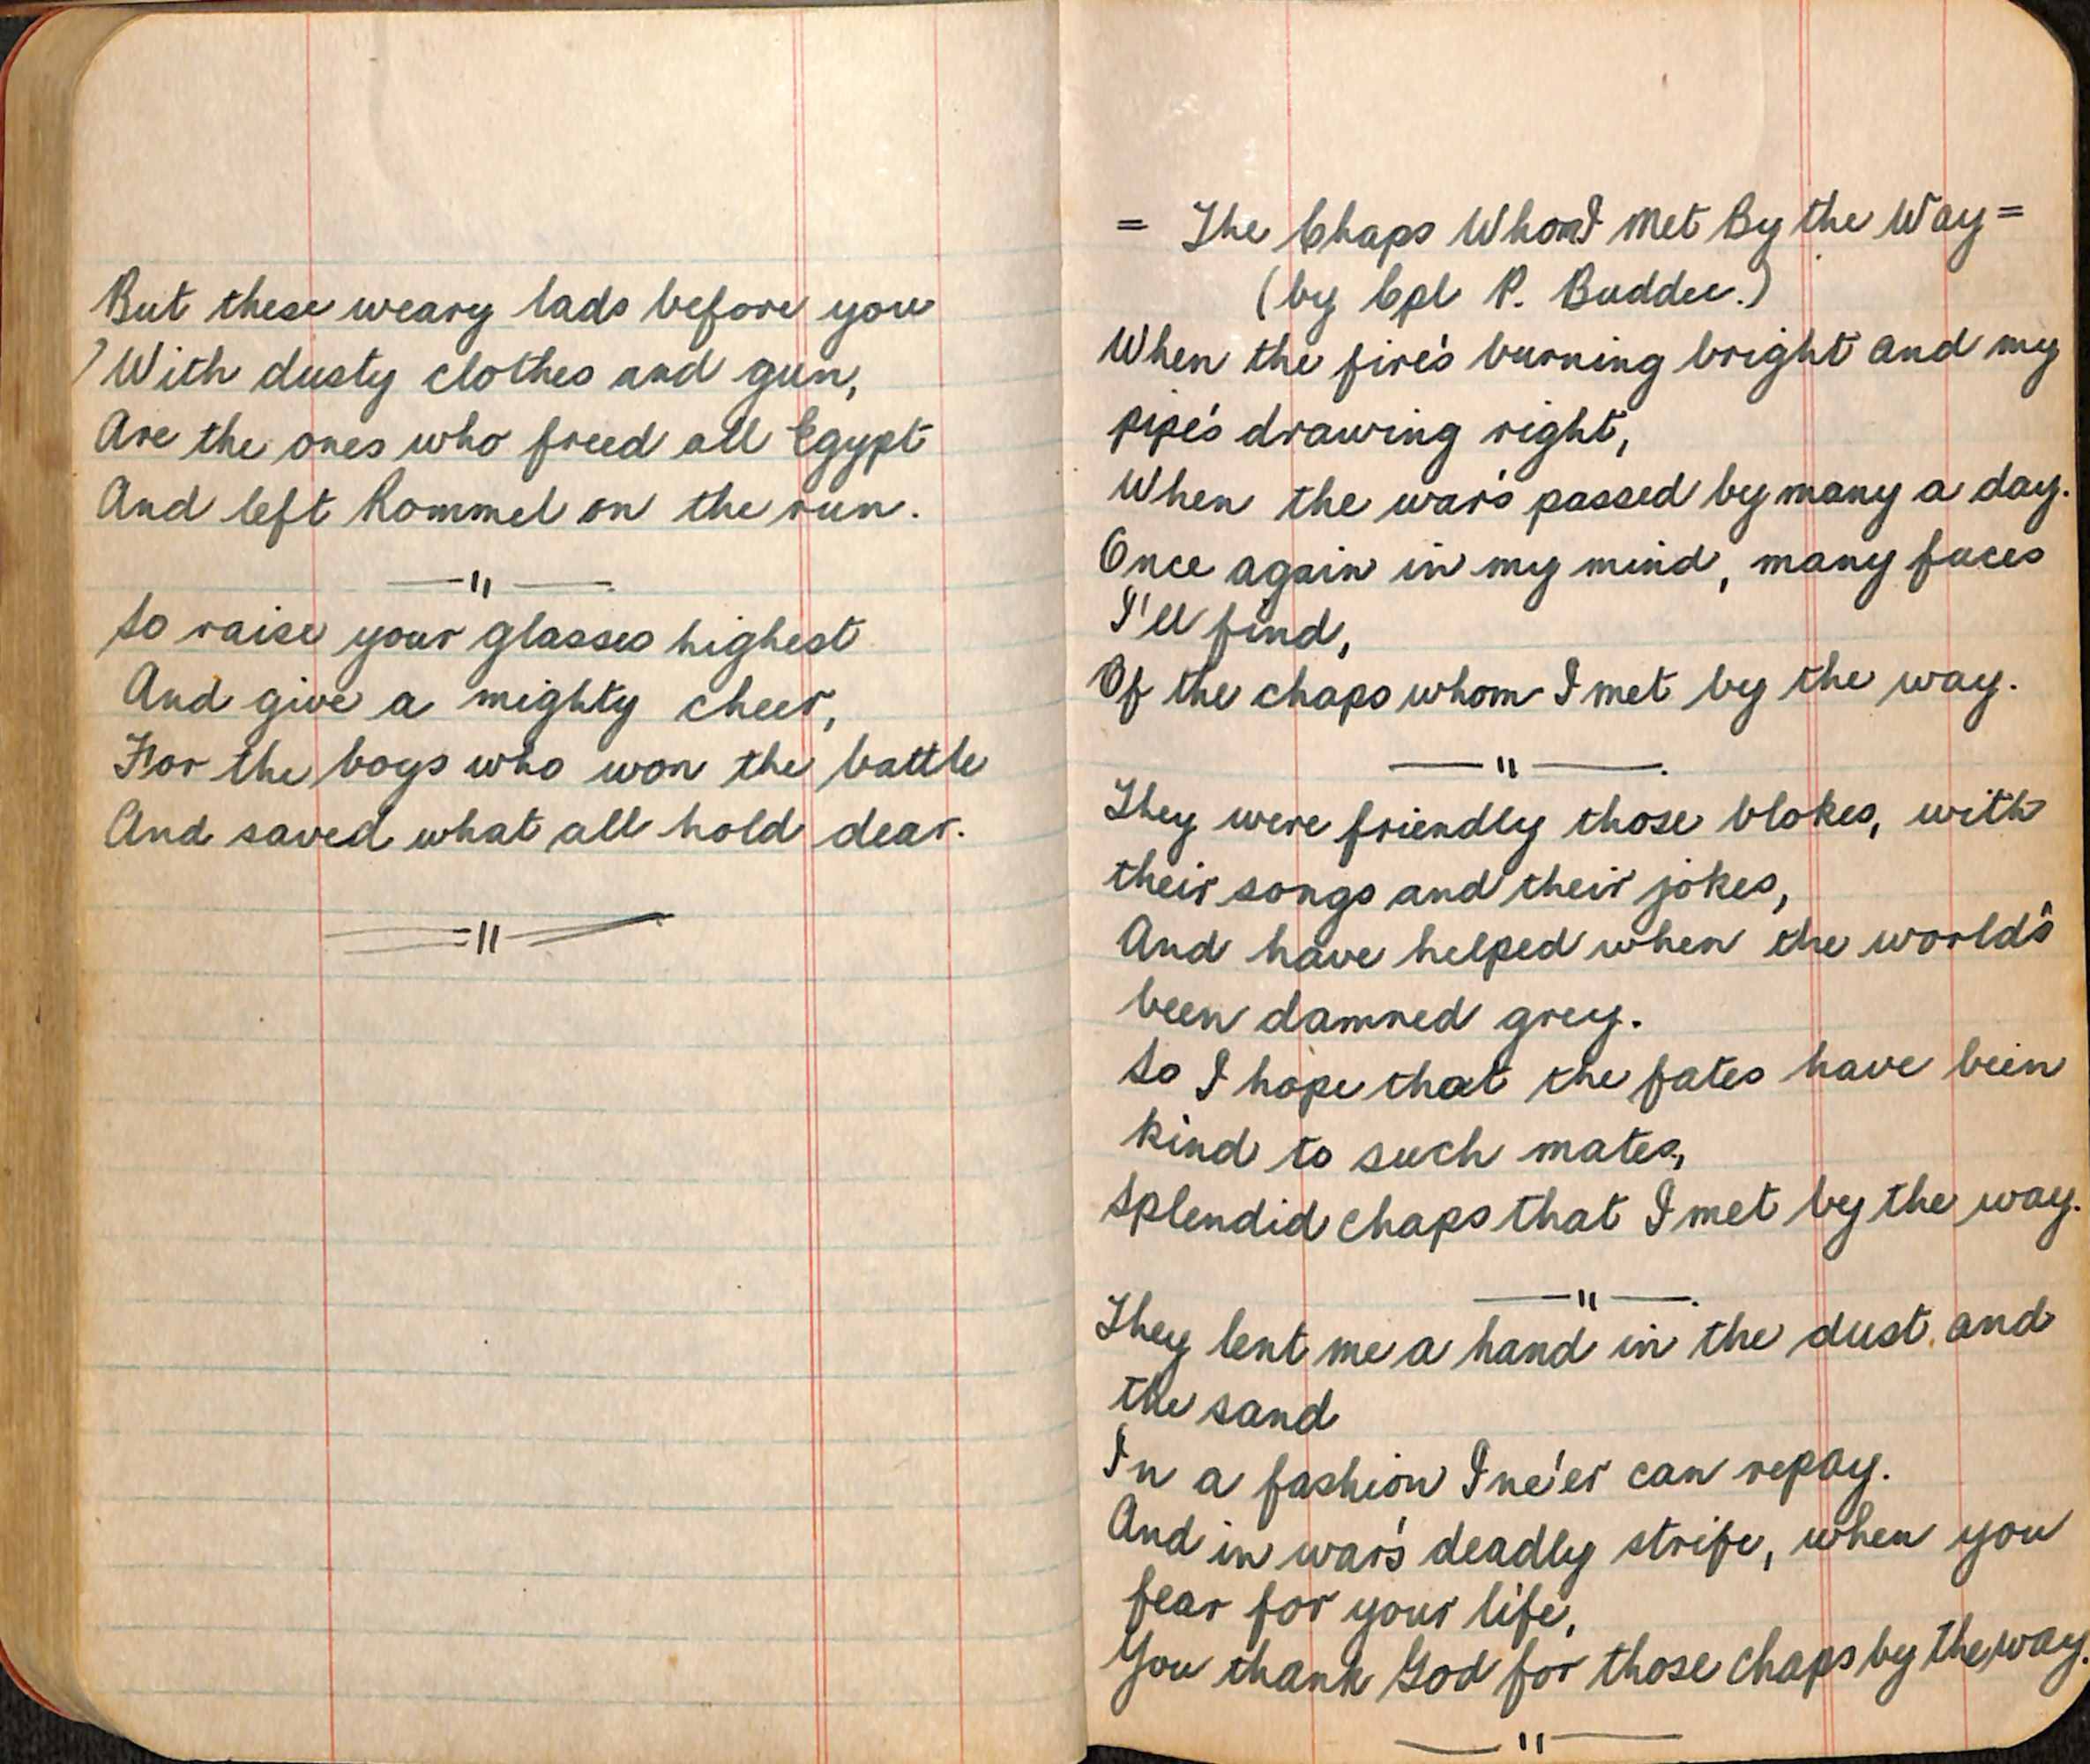 But these weary lads before you
With dusty clothes and gun,
Are the ones who freed all Egypt
And left Rommel on the run.
—"—
So raise your glasses highest
And give a mighty cheer,
For the boys who won the battle
And saved what all hold dear.
="=
= The Chaps Whom I Met By the Way =
(by Cpl P. Buddee.)
When the fire's burning bright and my
pipe's drawing right,
When the war's passed by many a day.
Once again in my mind, many faces
I'll find,
Of the chaps whom I met by the way.
—"—.
They were friendly those blokes, with
their songs and their jokes,
And have helped when the world's
been damned grey.
So I hope that the fates have been
kind to such mates,
Splendid chaps that I met by the way.
—"—.
They lent me a hand in the dust and
the sand
In a fashion I ne'er can repay.
And in war's deadly strife, when you
fear for your life,
You thank God for those chaps by the way.
—"—